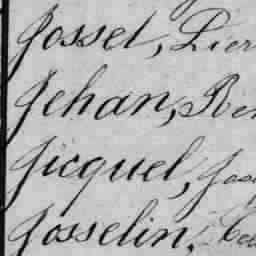 Josset, Pier
Jehan, Ren
Jicquel, Jos
Josselin,